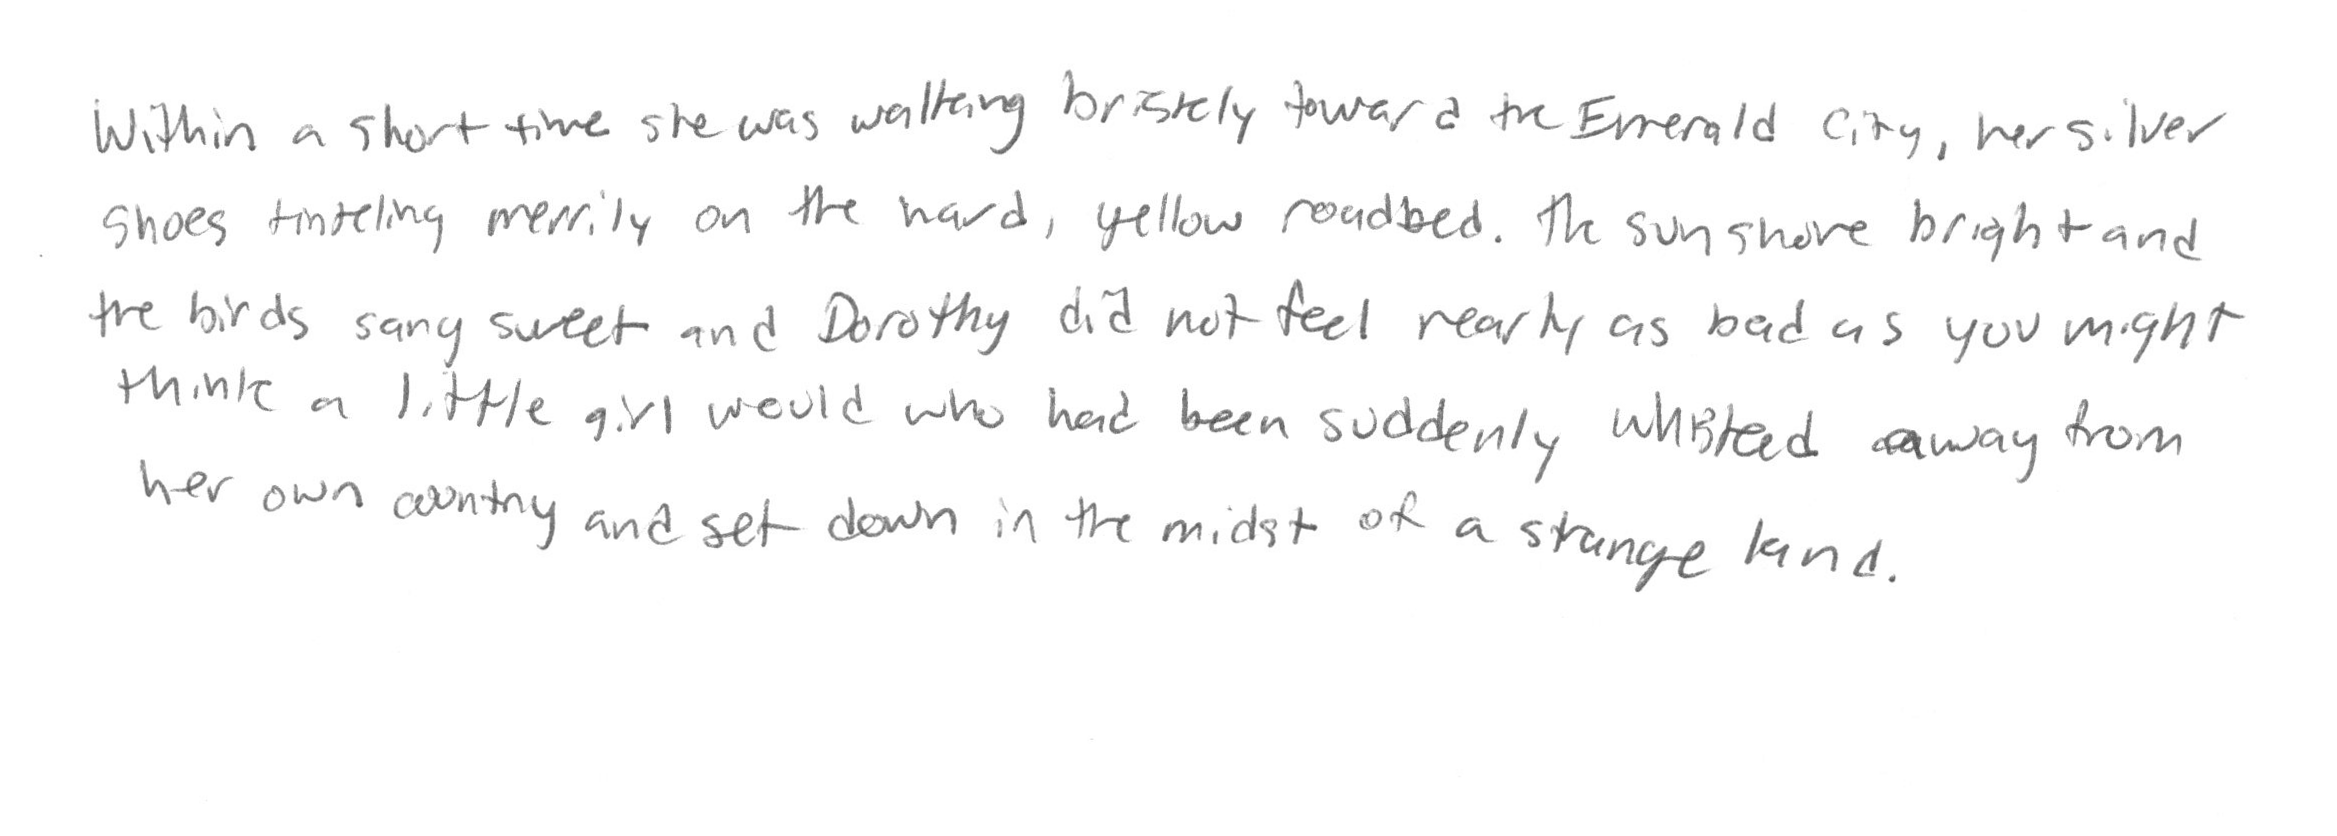 Within a short time she was walking briskly toward the Emerald City, her silver
shoes tinkling merrily on the hard, yellow roadbed. The sun shone bright and
the birds sang sweet and Dorothy did not feel nearly as bad as you might
think a little girl would who had been suddenly whisked away from
her own country and set down in the midst of a strange land.